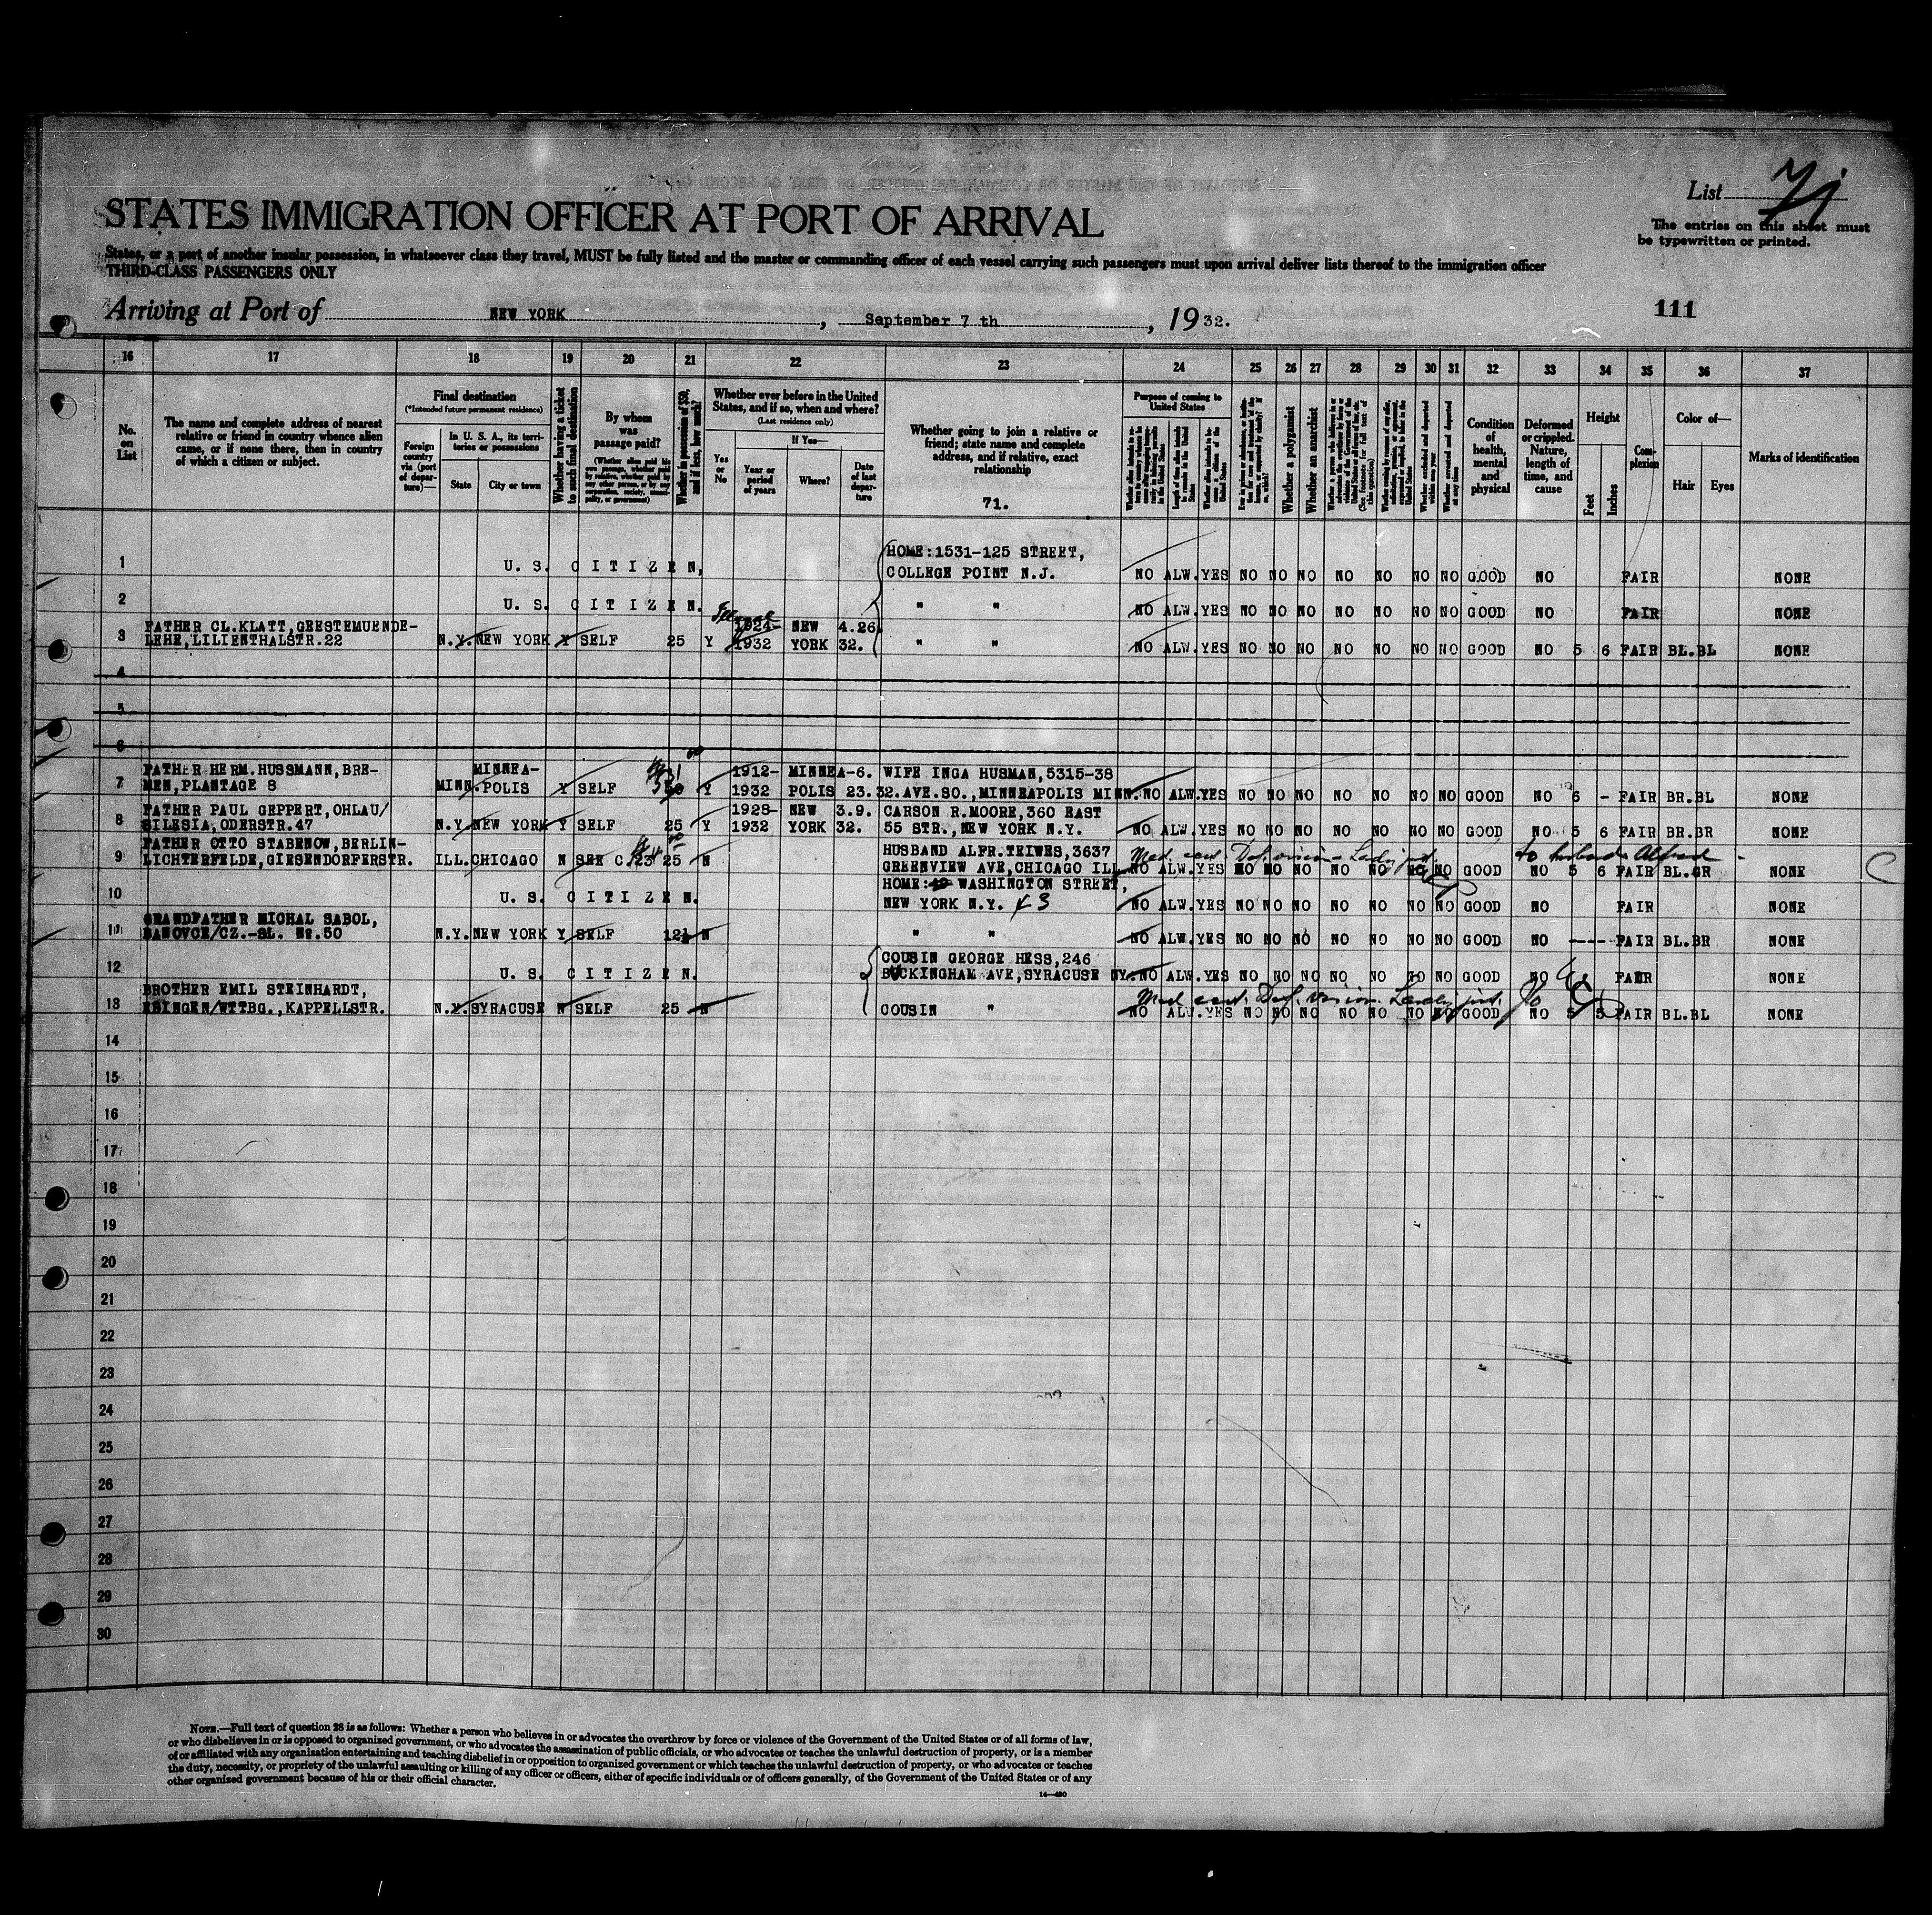 List 71
The entries on this sheet must
be typewritten or printed.
STATES IMMIGRATION OFFICER AT PORT OF ARRIVAL
States, or a port of another insular possession, in whatsoever class they travel, MUST be fully listed and the master or commanding officer of each vessel carrying such passengers must upon arrival deliver lists thereof to the immigration officer
THIRD-CLASS PASSENGERS ONLY
Arriving at Port of NEW YORK, September 7 th, 1932.
111
16 17 18 19 20 21 22 23 24 25 26 27 28 29 30 31 32 33 34 35 36 37
No.
on
List
The name and complete address of nearest
relative or friend in country whence alien
came, or if none there, then in country
of which a citizen or subject.
Final destination
(*Intended future permanent residence)
Foreign
country
via (port
of depar-
ture)—
In U. S. A., its terri-
tories or possessions
State
City or town
Whether having a ticket
to such final destination
By whom
was
passage paid?
(Whether alien paid his
own passage, whether paid
by relative, whether paid by
any other person, or by any
corporation, society, munici-
pality, or government)
Whether in possession of $50,
and if less, how much?
Whether ever before in the United
States, and if so, when and where?
(Last residence only)
Yes
or
No
If Yes—
Year or
period
of years
Where?
Date
of last
depar-
ture
Whether going to join a relative or
friend; state name and complete
address, and if relative, exact
relationship
71.
Purpose of coming to
United States
Whether a polygamist
Whether an anarchist
Whether excluded and deported
within one year
Whether arrested and deported
at any time
Condition
of
health,
mental
and
physical
Deformed
or crippled.
Nature,
length of
time, and
cause
Height
Feet
Inches
Com-
plexion
Color of—
Hair
Eyes
Marks of identification
HOME:1531-125 STREET,
1 U. S. CITIZEN, COLLEGE POINT N.J. NO ALW. YES NO NO NO NO NO NO NO GOOD NO FAIR NONE
2 U. S. CITIZEN. " " NO ALW. YES NO NO NO NO NO NO NO GOOD NO FAIR NONE
FATHER CL.KLATT,GEESTEMUENDE- 1924- NEW 4.26.
3 LEHE,LILIENTHALSTR.22 N.Y. NEW YORK Y SELF 25 Y 1932 YORK 32. " " NO ALW. YES NO NO NO NO NO NO NO GOOD NO 5 6 FAIR BL.BL NONE
4
5
6
FATHER HERM.HUSSMANN,BRE- MINNEA- 1912- MINNEA-6. WIFE INGA HUSMAN,5315-38
7 MEN,PLANTAGE 8 MINN. POLIS Y SELF Y 1932 POLIS 23.32. AVE.SO.,MINNEAPOLIS MINN. NO ALW.YES NO NO NO NO NO NO NO GOOD NO 6 - FAIR BR.BL NONE
FATHER PAUL GEPPERT,OHLAU/ 1928- NEW 3.9. CARSON R.MOORE,360 EAST
8 SILESIA,ODERSTR.47 N.Y. NEW YORK Y SELF 25 Y 1932 YORK 32. 55 STR.,NEW YORK N.Y. NO ALW.YES NO NO NO NO NO NO NO GOOD NO 5 6 FAIR BR.BR NONE
FATHER OTTO STABENOW,BERLIN- HUSBAND ALFR.TEIWES,3637
Med. cert. Def. vision Landg just. to husband Alfred
9 LICHTERFELDE,GIESENDORFERSTR. ILL. CHICAGO N SEE C.23 25 N GREENVIEW AVE,CHICAGO ILL. NO ALW.YES NO NO NO NO NO NO NO GOOD NO 5 6 FAIR BL.GR NONE
HOME: WASHINGTON STREET,
10 U. S. CITIZEN. NEW YORK N.Y. 43 NO ALW.YES NO NO NO NO NO NO NO GOOD NO FAIR NONE
GRANDFATHER MICHAL SABOL,
11 BANOVCE/CZ.-SL. No.50 N.Y. NEW YORK Y SELF N " " NO ALW.YES NO NO NO NO NO NO NO GOOD NO --- FAIR BL.BR NONE
COUSIN GEORGE HESS,246
12 U. S. CITIZEN. BUCKINGHAM AVE,SYRACUSE NY. NO ALW.YES NO NO NO NO NO NO NO GOOD NO FAIR NONE
BROTHER EMIL STEINHARDT,
Med cert. Def. vision Landg just.
13 EBINGEN/WTTBG.,KAPPELLSTR. N.Y. SYRACUSE N SELF 25 N COUSIN " NO ALW.YES NO NO NO NO NO NO NO GOOD NO 5 5 FAIR BL.BL NONE
14
15
16
17
18
19
20
21
22
23
24
25
26
27
28
29
30
NOTE.—Full text of question 28 is as follows: Whether a person who believes in or advocates the overthrow by force or violence of the Government of the United States or of all forms of law,
or who disbelieves in or is opposed to organized government, or who advocates the assassination of public officials, or who advocates or teaches the unlawful destruction of property, or is a member
of or affiliated with any organization entertaining and teaching disbelief in or opposition to organized government or which teaches the unlawful destruction of property, or who advocates or teaches
the duty, necessity, or propriety of the unlawful assaulting or killing of any officer or officers, either of specific individuals or of officers generally, of the Government of the United States or of any
other organized government because of his or their official character.
14—480